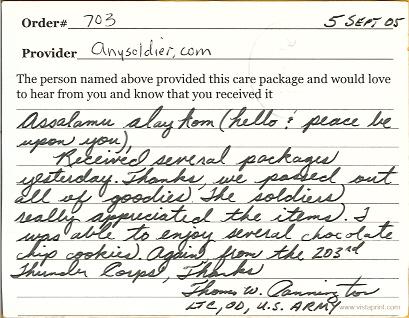 Order# 703 5 SEPT 05
Provider Anysoldier.com
The person named above provided this care package and would love
to hear from you and know that you received it
Assalamu alaykom (hello & peace be
upon you),
Received several packages
yesterday. Thanks, we passed out
all of goodies. The soldiers
really appreciated the items. I
was able to enjoy several chocolate
chip cookies. Again from the 203rd
Thunder Corps, Thanks
Thomas W.
LTC, OD, U.S. ARMY
www.vistaprint.com